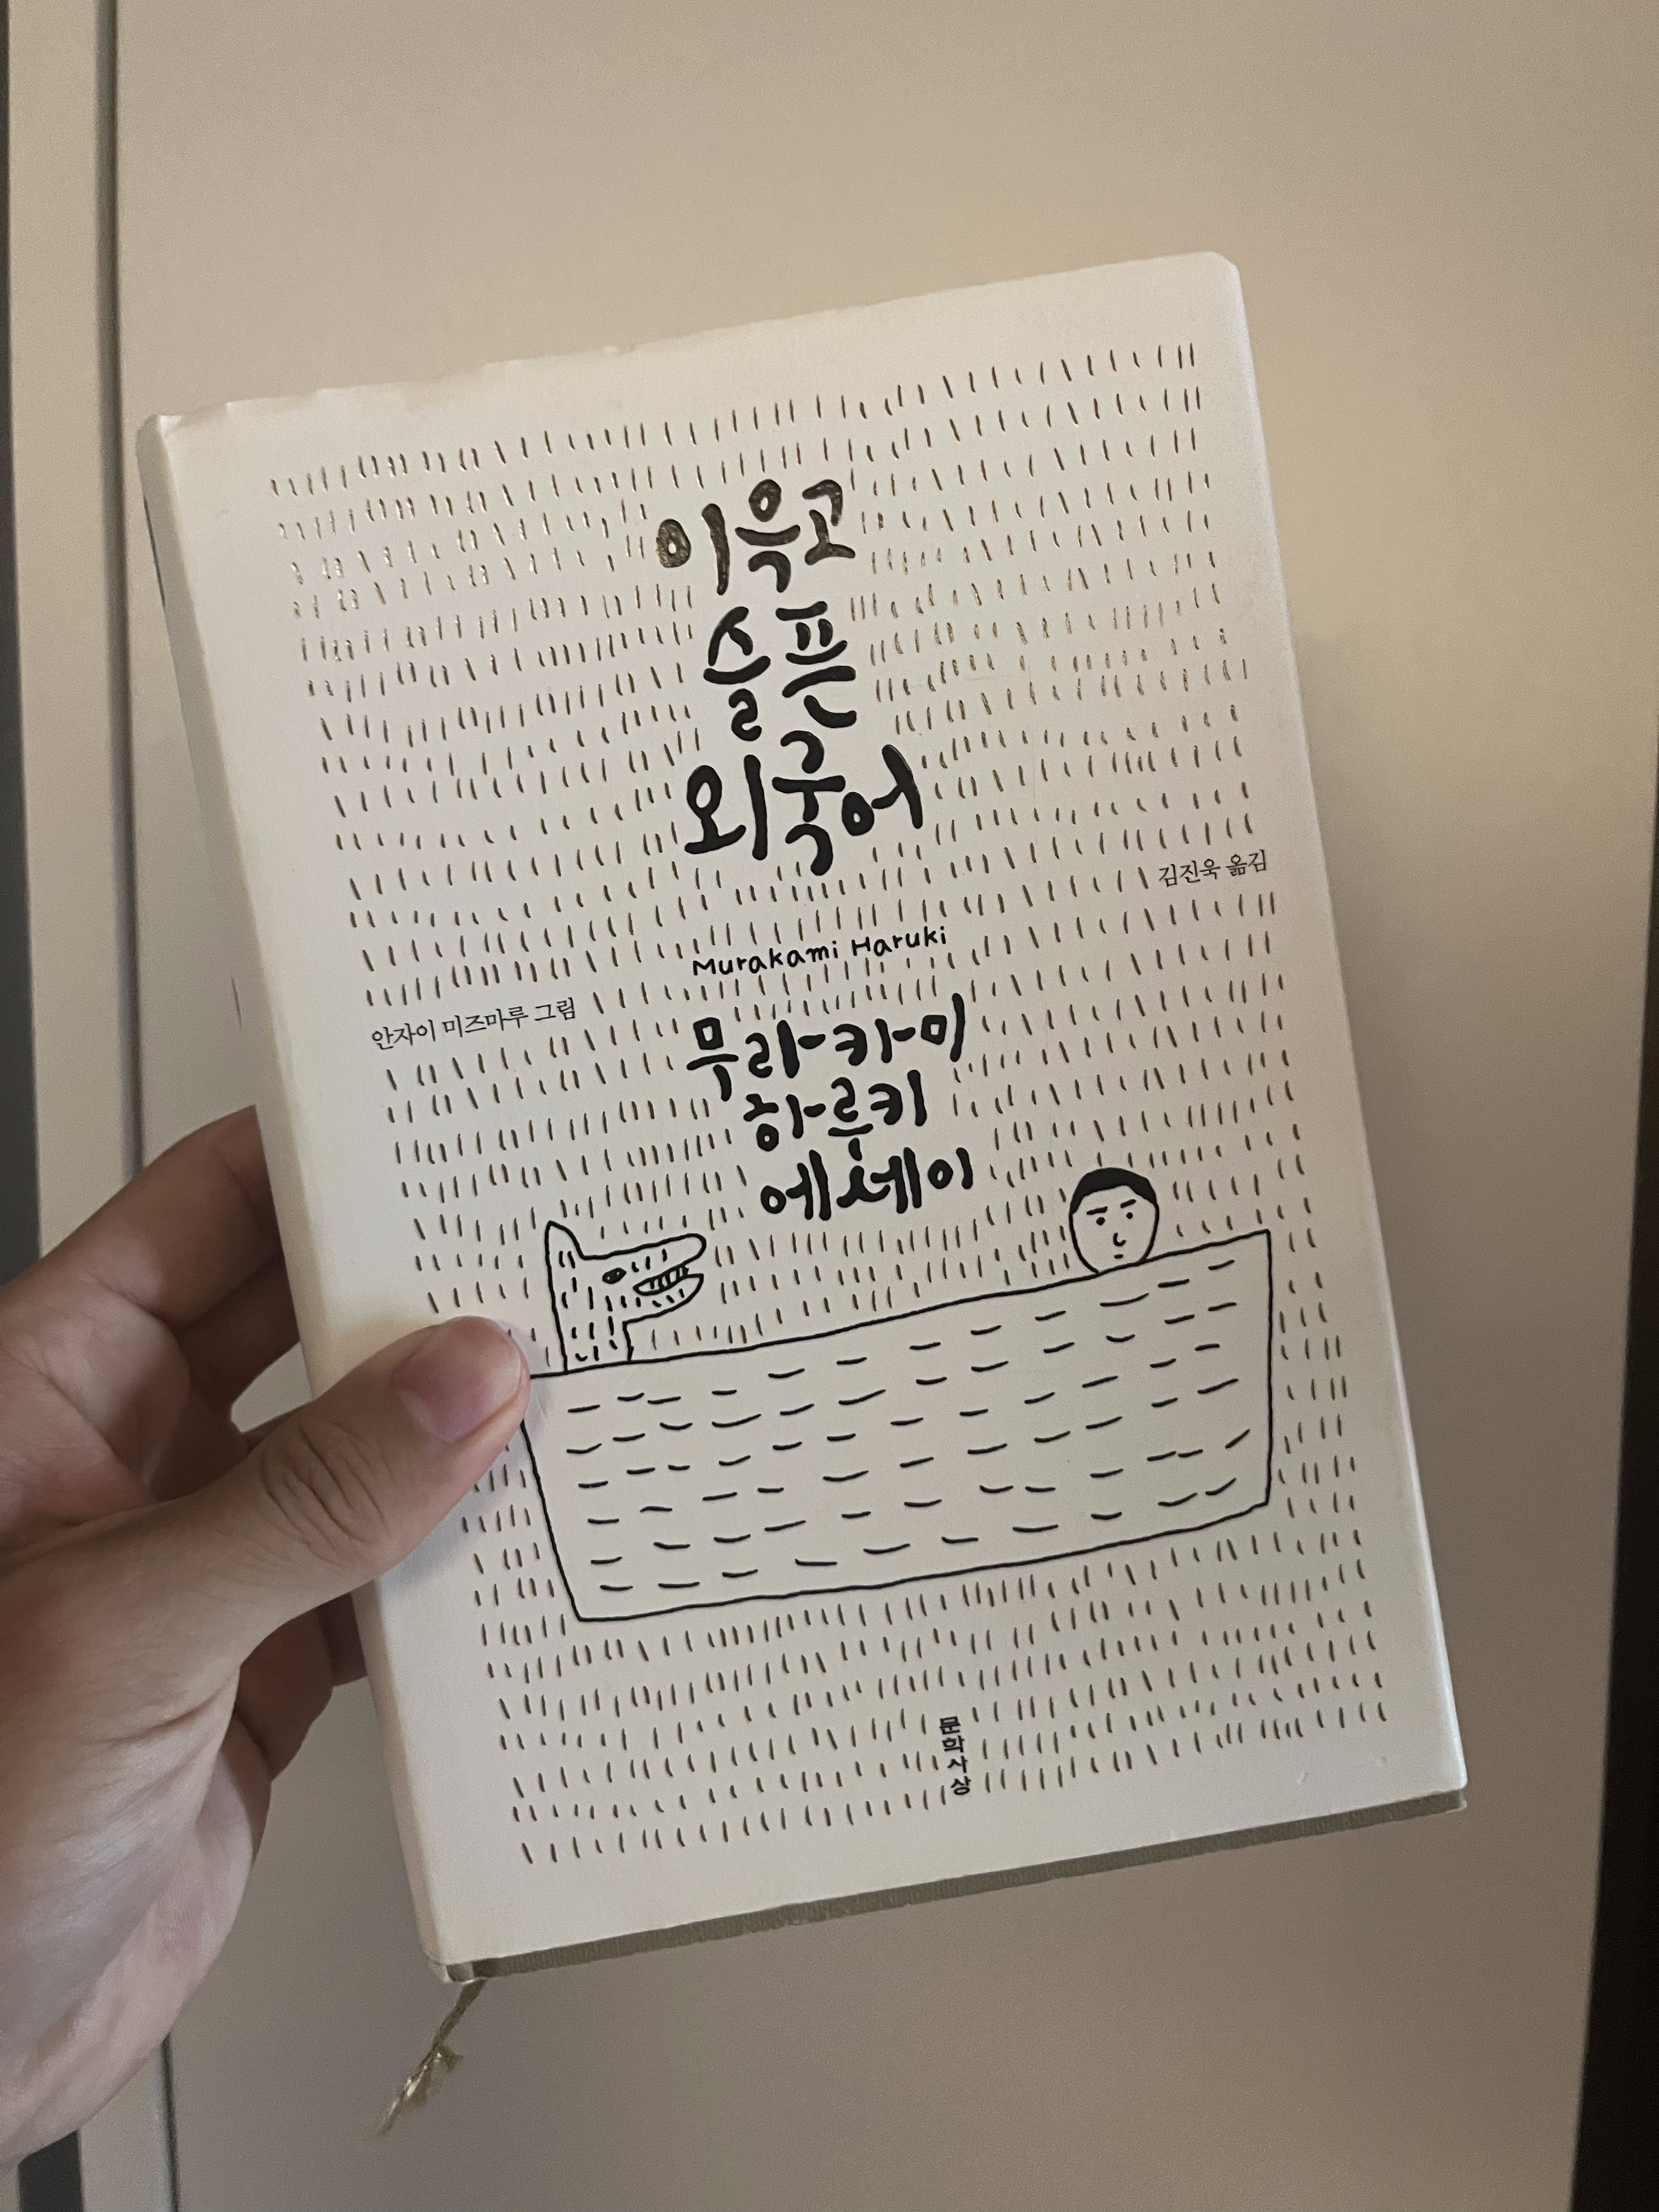 이윽고
슬픈
외국어
김진욱 옮김
Murakami Haruki
안자이 미즈마루 그림
무라카미
하루키
에세이
문학사상